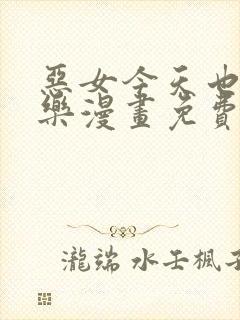 惡女今天也
樂漫畫免費
瀧端 水壬楓子